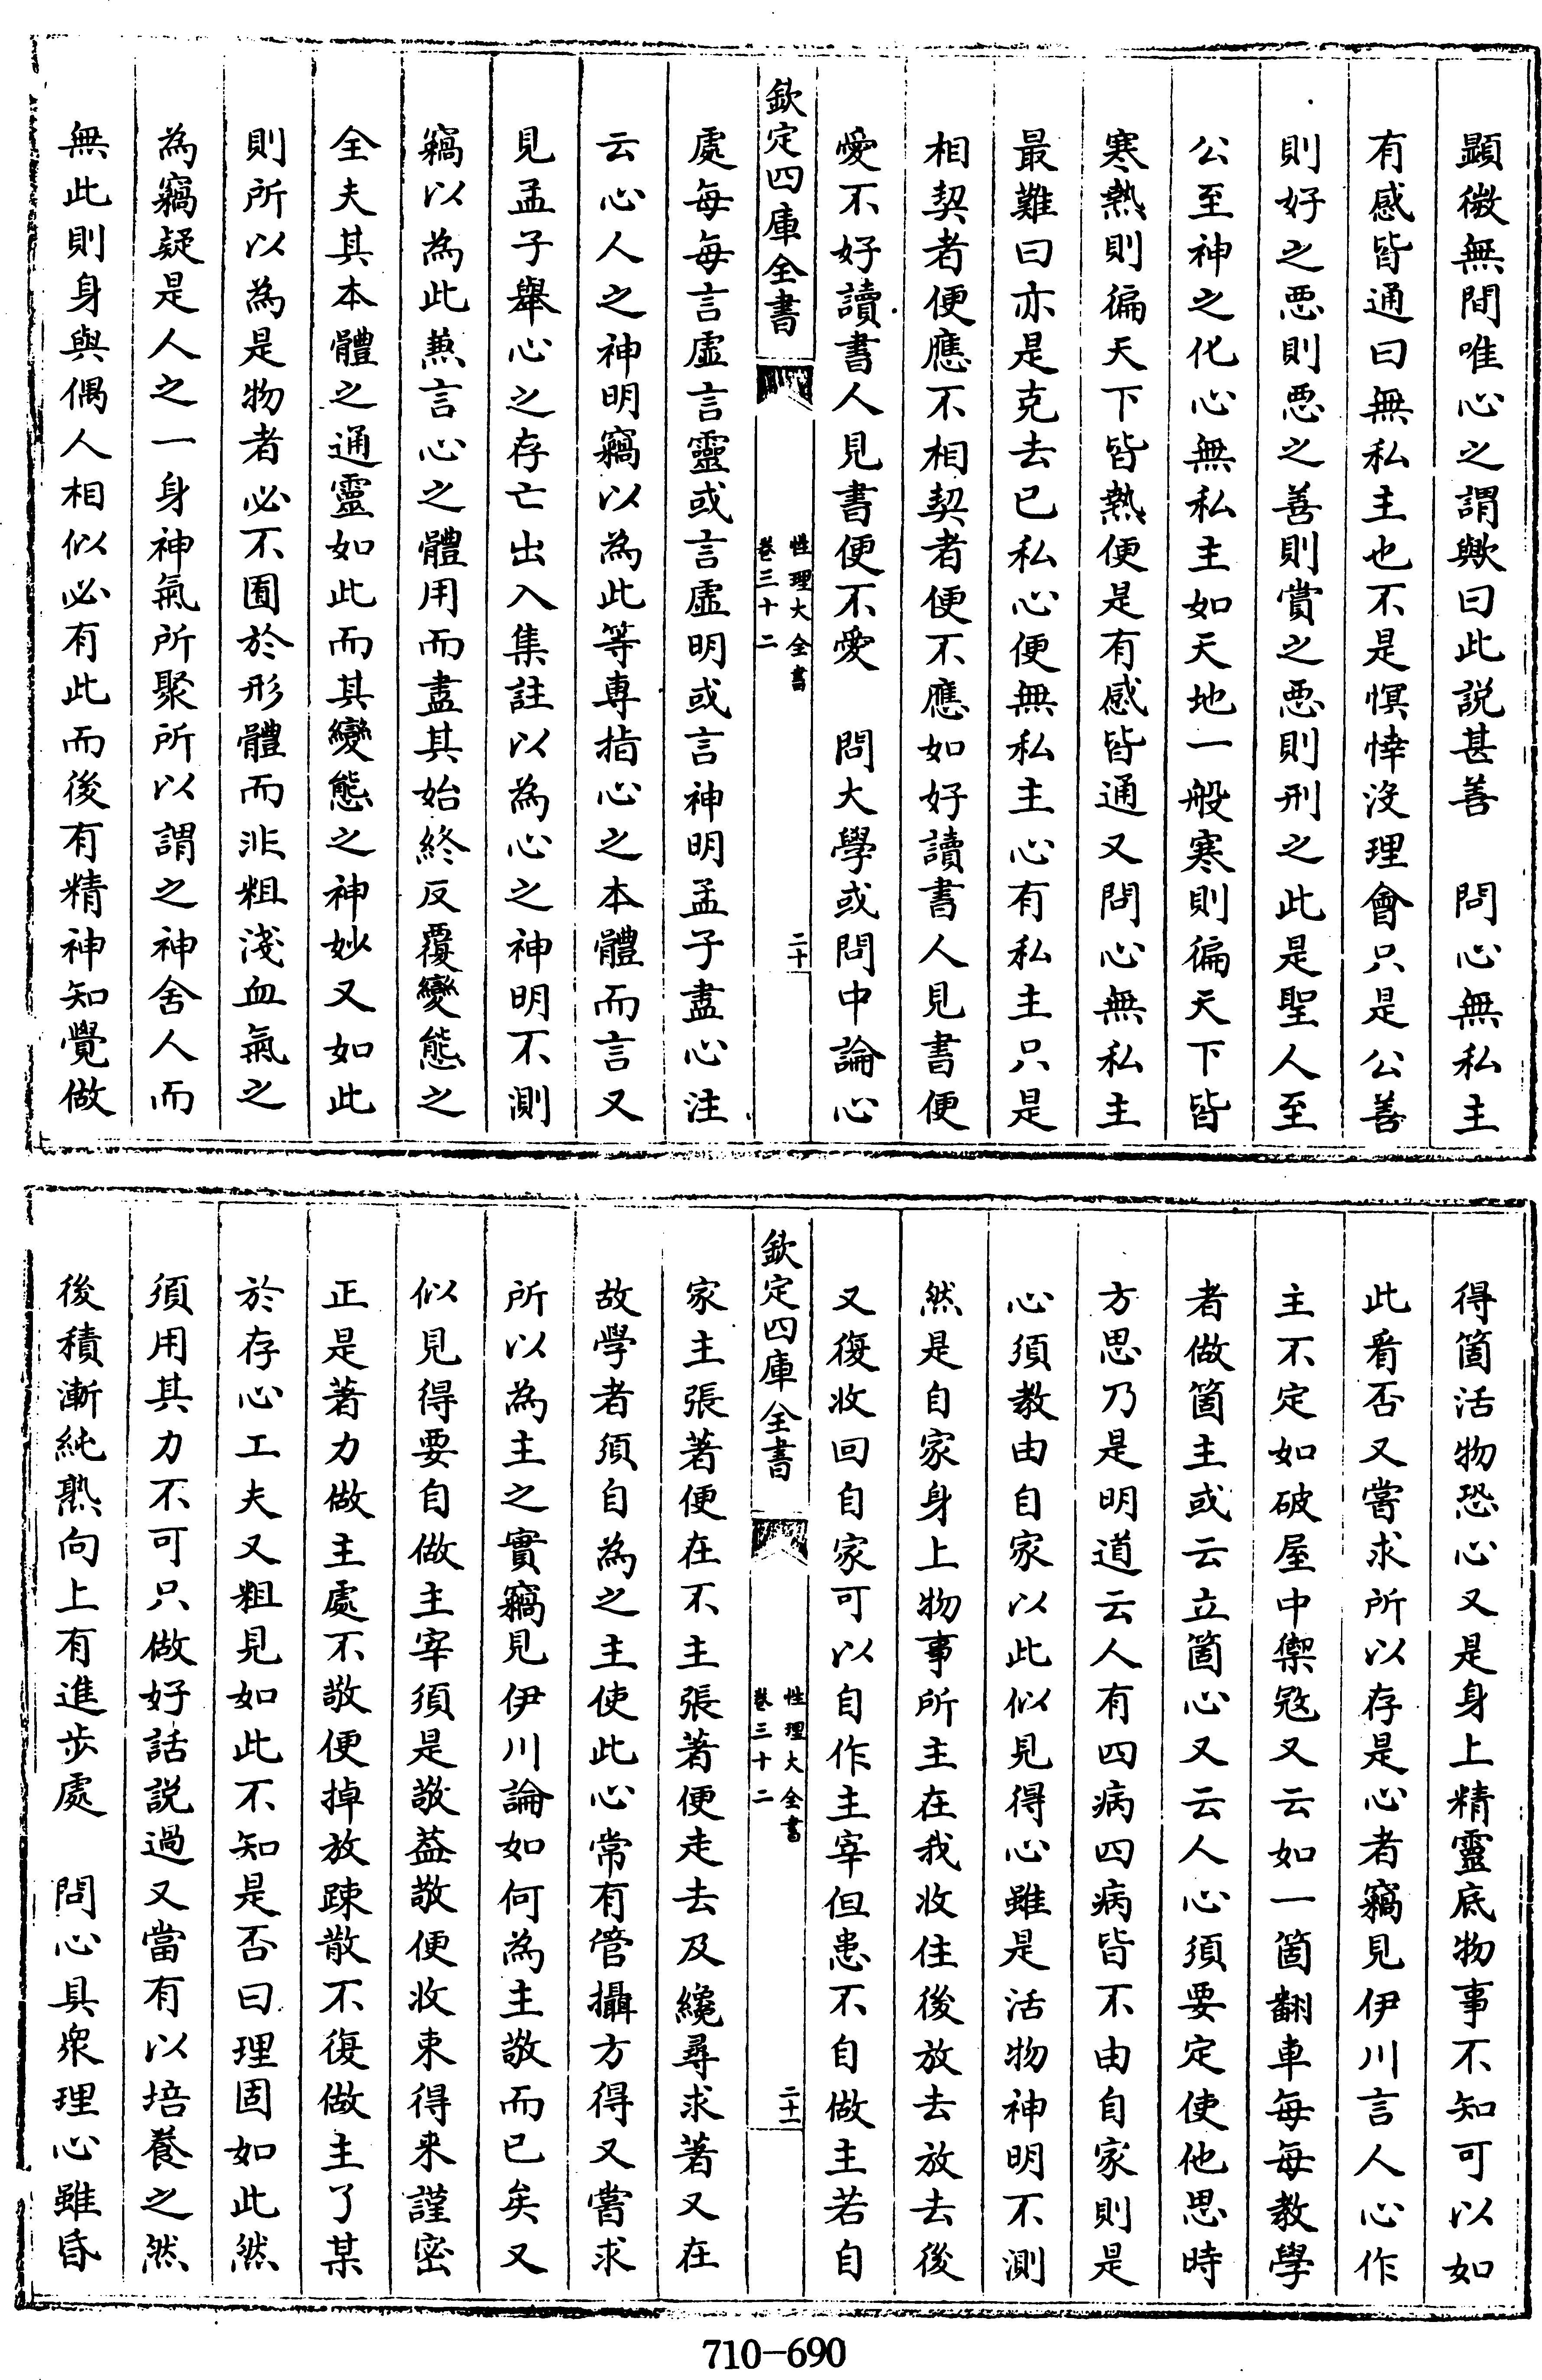 顯微無間唯心之謂歟曰此説甚善　問心無私主
有感皆通曰無私主也不是愼悻沒理會只是公善
則好之惡則惡之善則賞之惡則刑之此是聖人至
公至神之化心無私主如天地一般寒則徧天下皆
寒熱則徧天下皆熱便是有感皆通又問心無私主
最難曰亦是克去已私心便無私主心有私主只是
相契者便應不相契者便不應如好讀書人見書便
愛不好讀書人見書便不愛　問大學或問中論心
欽定四庫全書　性理大全書 卷三十二　二十
處每每言虛言靈或言虛明或言神明孟子盡心注
云心人之神明竊以為此等專指心之本體而言又
見孟子舉心之存亡出入集註以為心之神明不測
竊以為此兼言心之體用而盡其始終反覆變態之
全夫其本體之通靈如此而其變態之神妙又如此
則所以為是物者必不囿於形體而非粗淺血氣之
為竊疑是人之一身神氣所聚所以謂之神舍人而
無此則身與偶人相似必有此而後有精神知覺做
得箇活物恐心又是身上精靈底物事不知可以如
此看否又嘗求所以存是心者竊見伊川言人心作
主不定如破屋中禦宼又云如一箇翻車每每教學
者做箇主或云立箇心又云人心須要定使他思時
方思乃是明道云人有四病四病皆不由自家則是
心須教由自家以此似見得心雖是活物神明不測
然是自家身上物事所主在我收住後放去放去後
又復收回自家可以自作主宰但患不自做主若自
欽定四庫全書　性理大全書 卷三十二　二十一
家主張著便在不主張著便走去及纔尋求著又在
故學者須自為之主使此心常有管攝方得又嘗求
所以為主之實竊見伊川論如何為主敬而已矣又
似見得要自做主宰須是敬蓋敬便收束得来謹密
正是著力做主處不敬便掉放踈散不復做主了某
於存心工夫又粗見如此不知是否曰理固如此然
須用其力不可只做好話説過又當有以培養之然
後積漸純熟向上有進步處　問心具衆理心雖昏
710-690